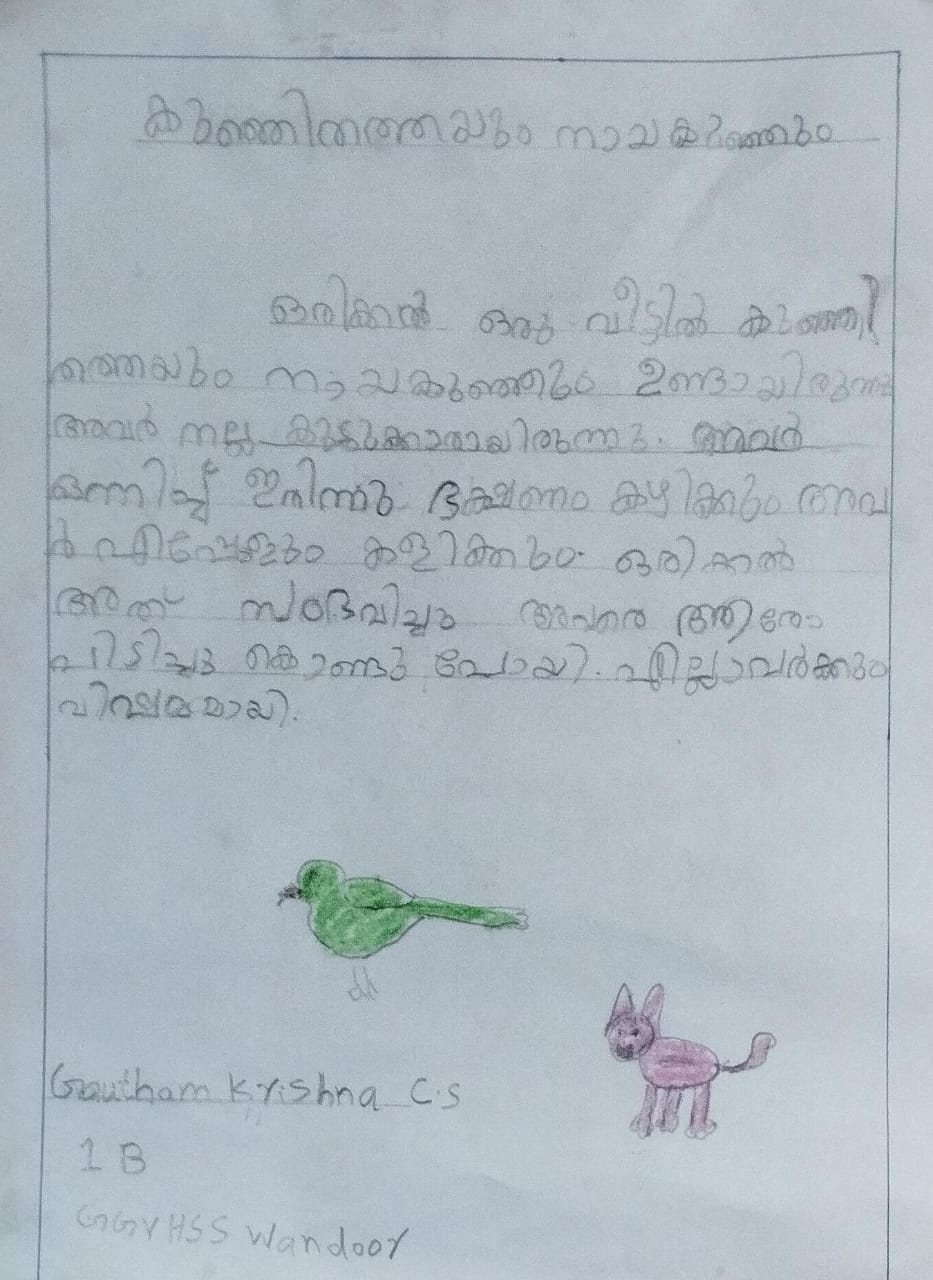 കുഞ്ഞിതത്തയും നായകുഞ്ഞും
ഒരിക്കൽ ഒരു വീട്ടിൽ കുഞ്ഞി
തത്തയും നായകുഞ്ഞും ഉണ്ടായിരുന്നു
അവർ നല്ല കൂട്ടുക്കാരായിരുന്നു. അവർ
ഒന്നിച്ച് ഇരിന്നു ഭക്ഷണം കഴിക്കും അവ
ർ എപ്പെളും കളിക്കും. ഒരിക്കൽ
അത് സംഭവിച്ചു അവരെ ആരോ
പിടിച്ചു കൊണ്ടു പോയി. എല്ലാവർക്കും
വിഷമമായി.
Gautham Krishna C.S
1 B
GGVHSS Wandoor